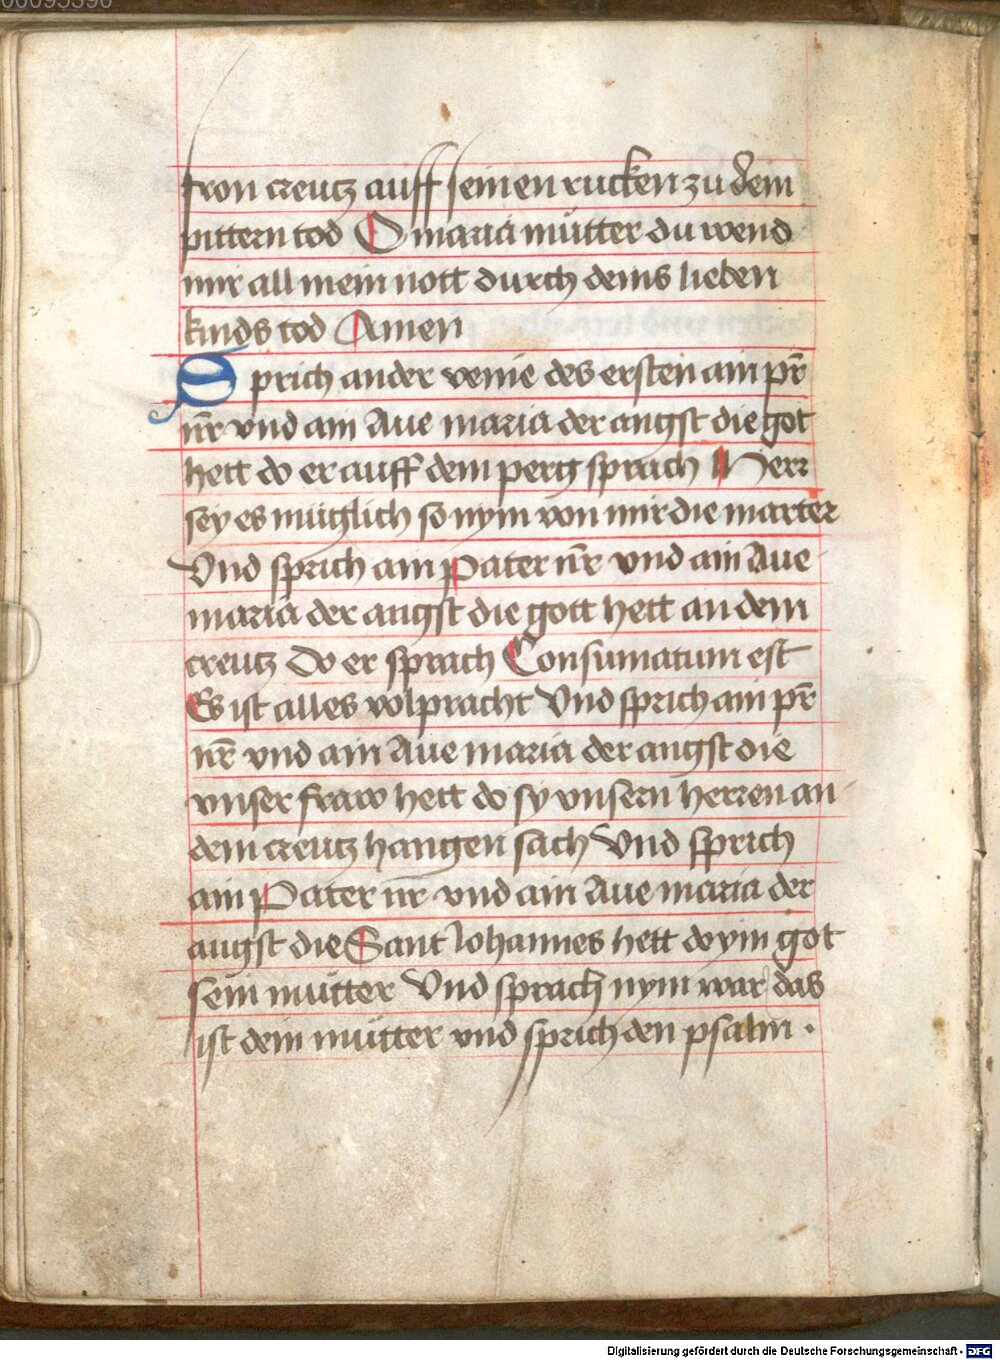 00095390
fron creutz auff seinen rucken zu dem
pittern tod O maria mütter du wend
mir all mein nott durch deins lieben
kinds tod Amen
Sprich ander venie des ersten ain pr̄
nr̄ vnd ain Aue maria der angst die got
hett do er auff dem perg sprach Herr
sey es müglich so nym von mir die marter
Vnd sprich ain Pater nr̄ vnd ain Aue
maria der angst die gott hett an dem
creutz Do er sprach Consumatum est
Es ist alles volpracht Vnd sprich ain pr̄
nr̄ vnd ain Aue maria der angst die
vnser fraw hett do sy vnsern herren an
dem creutz hangen sach Vnd sprich
ain Pater nr̄ vnd ain Aue maria der
angst die Sant Johannes hett do ym got
sein mütter Vnd sprach nym war das
ist dein mütter vnd sprich den psalm ·
Digitalisierung gefördert durch die Deutsche Forschungsgemeinschaft - DFG